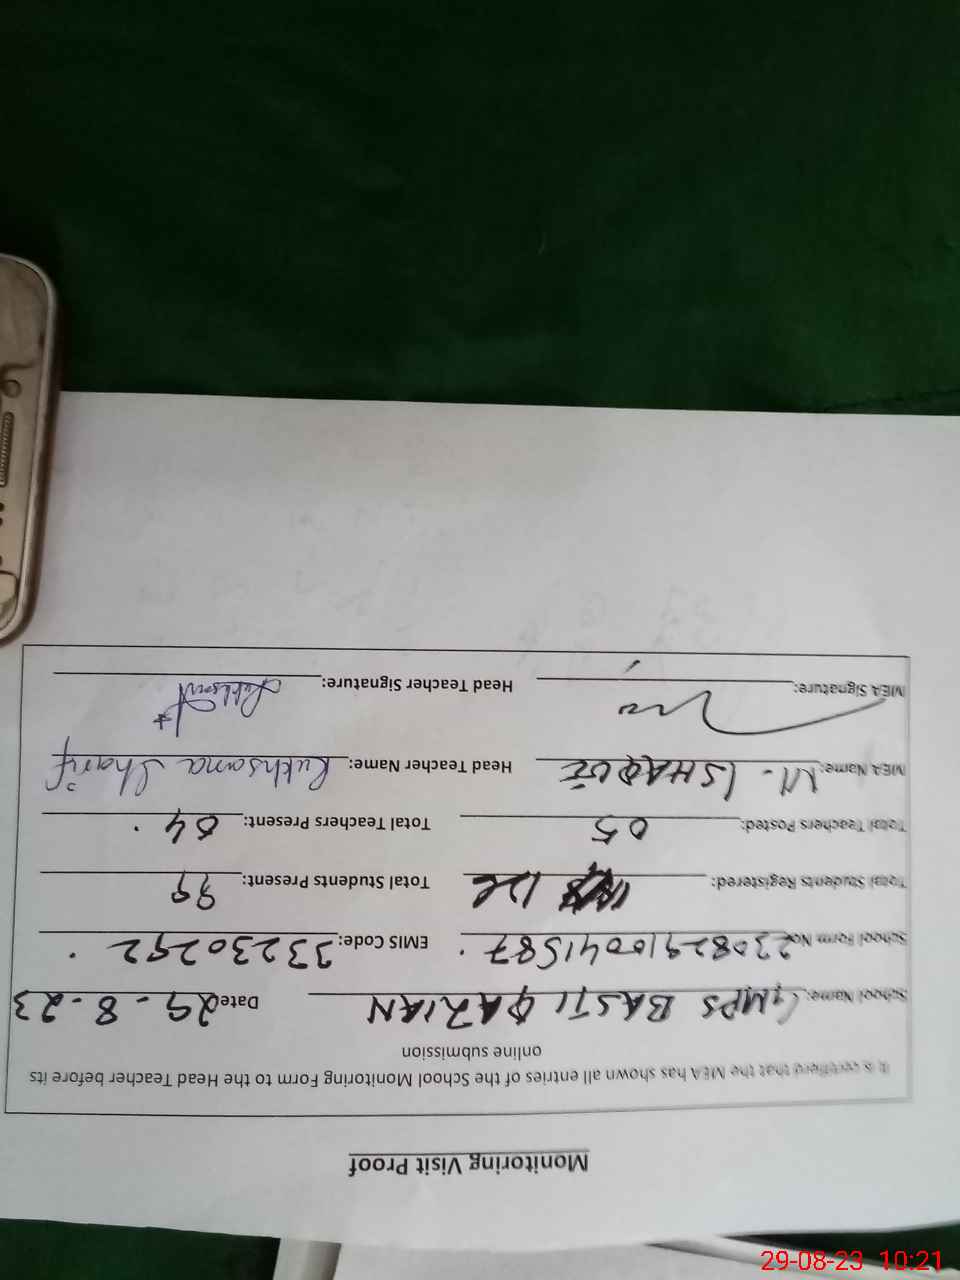 Monitoring Visit Proof
It is certified that the MEA has shown all entries of the School Monitoring Form to the Head Teacher before its
online submission
School Name: GMPS BASTI QAZIAN Date: 29-8-23
School Form No. 23082910041587. EMIS Code: 33230292.
Total Students Registered: Total Students Present: 99
Total Teachers Posted: 05 Total Teachers Present: 04.
MEA Name: M. ISHAQUE Head Teacher Name: Rukhsana Sharif
MEA Signature: Head Teacher Signature:
29-08-23 10:21